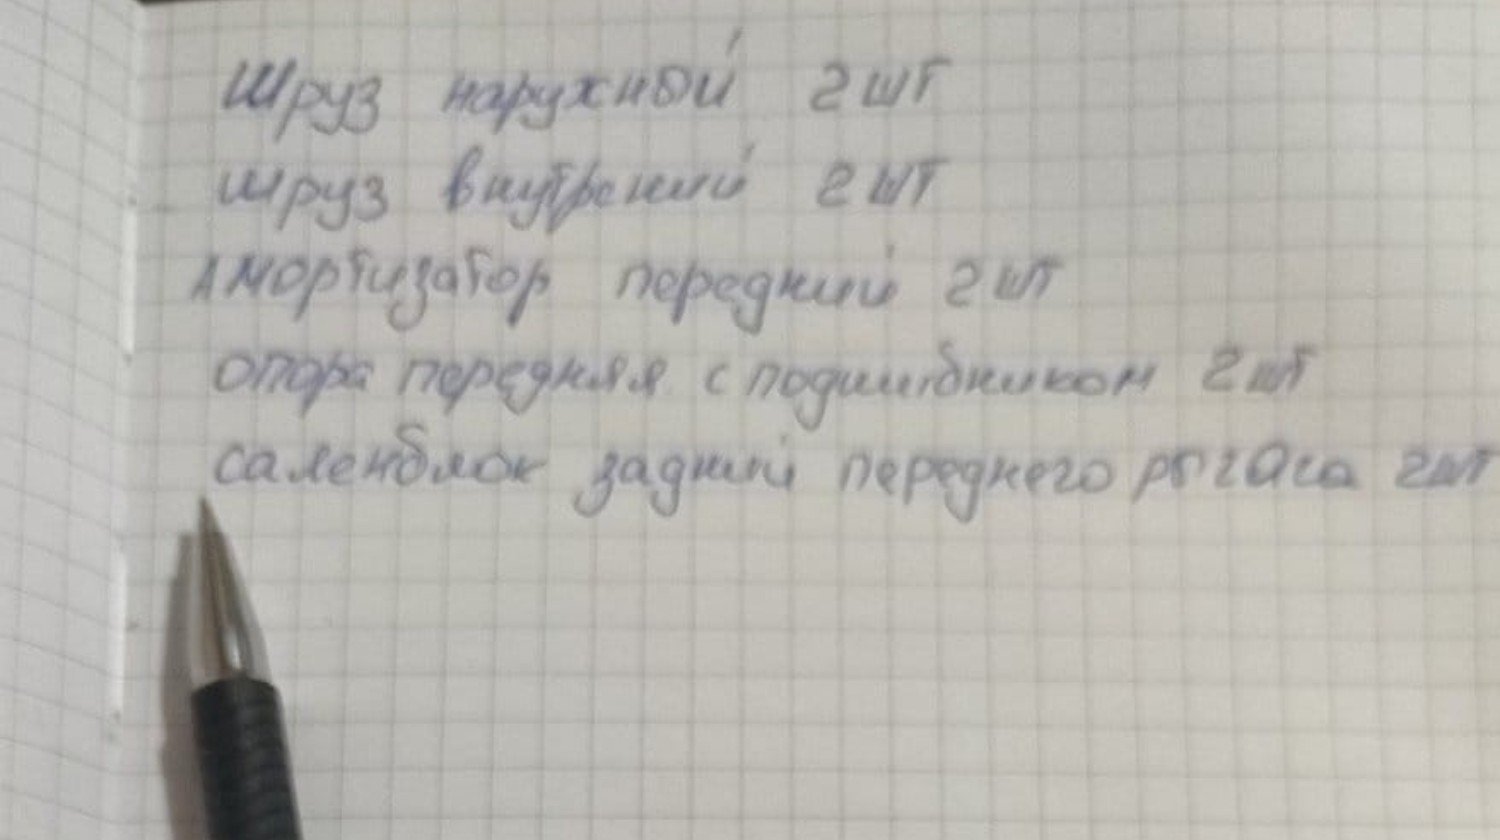 Шруз наружный 2 шт
шруз внутрений 2 шт
Амортизатор передний 2 шт
опора передняя с подшибником 2 шт
саленблок задний переднего рычага 2 шт